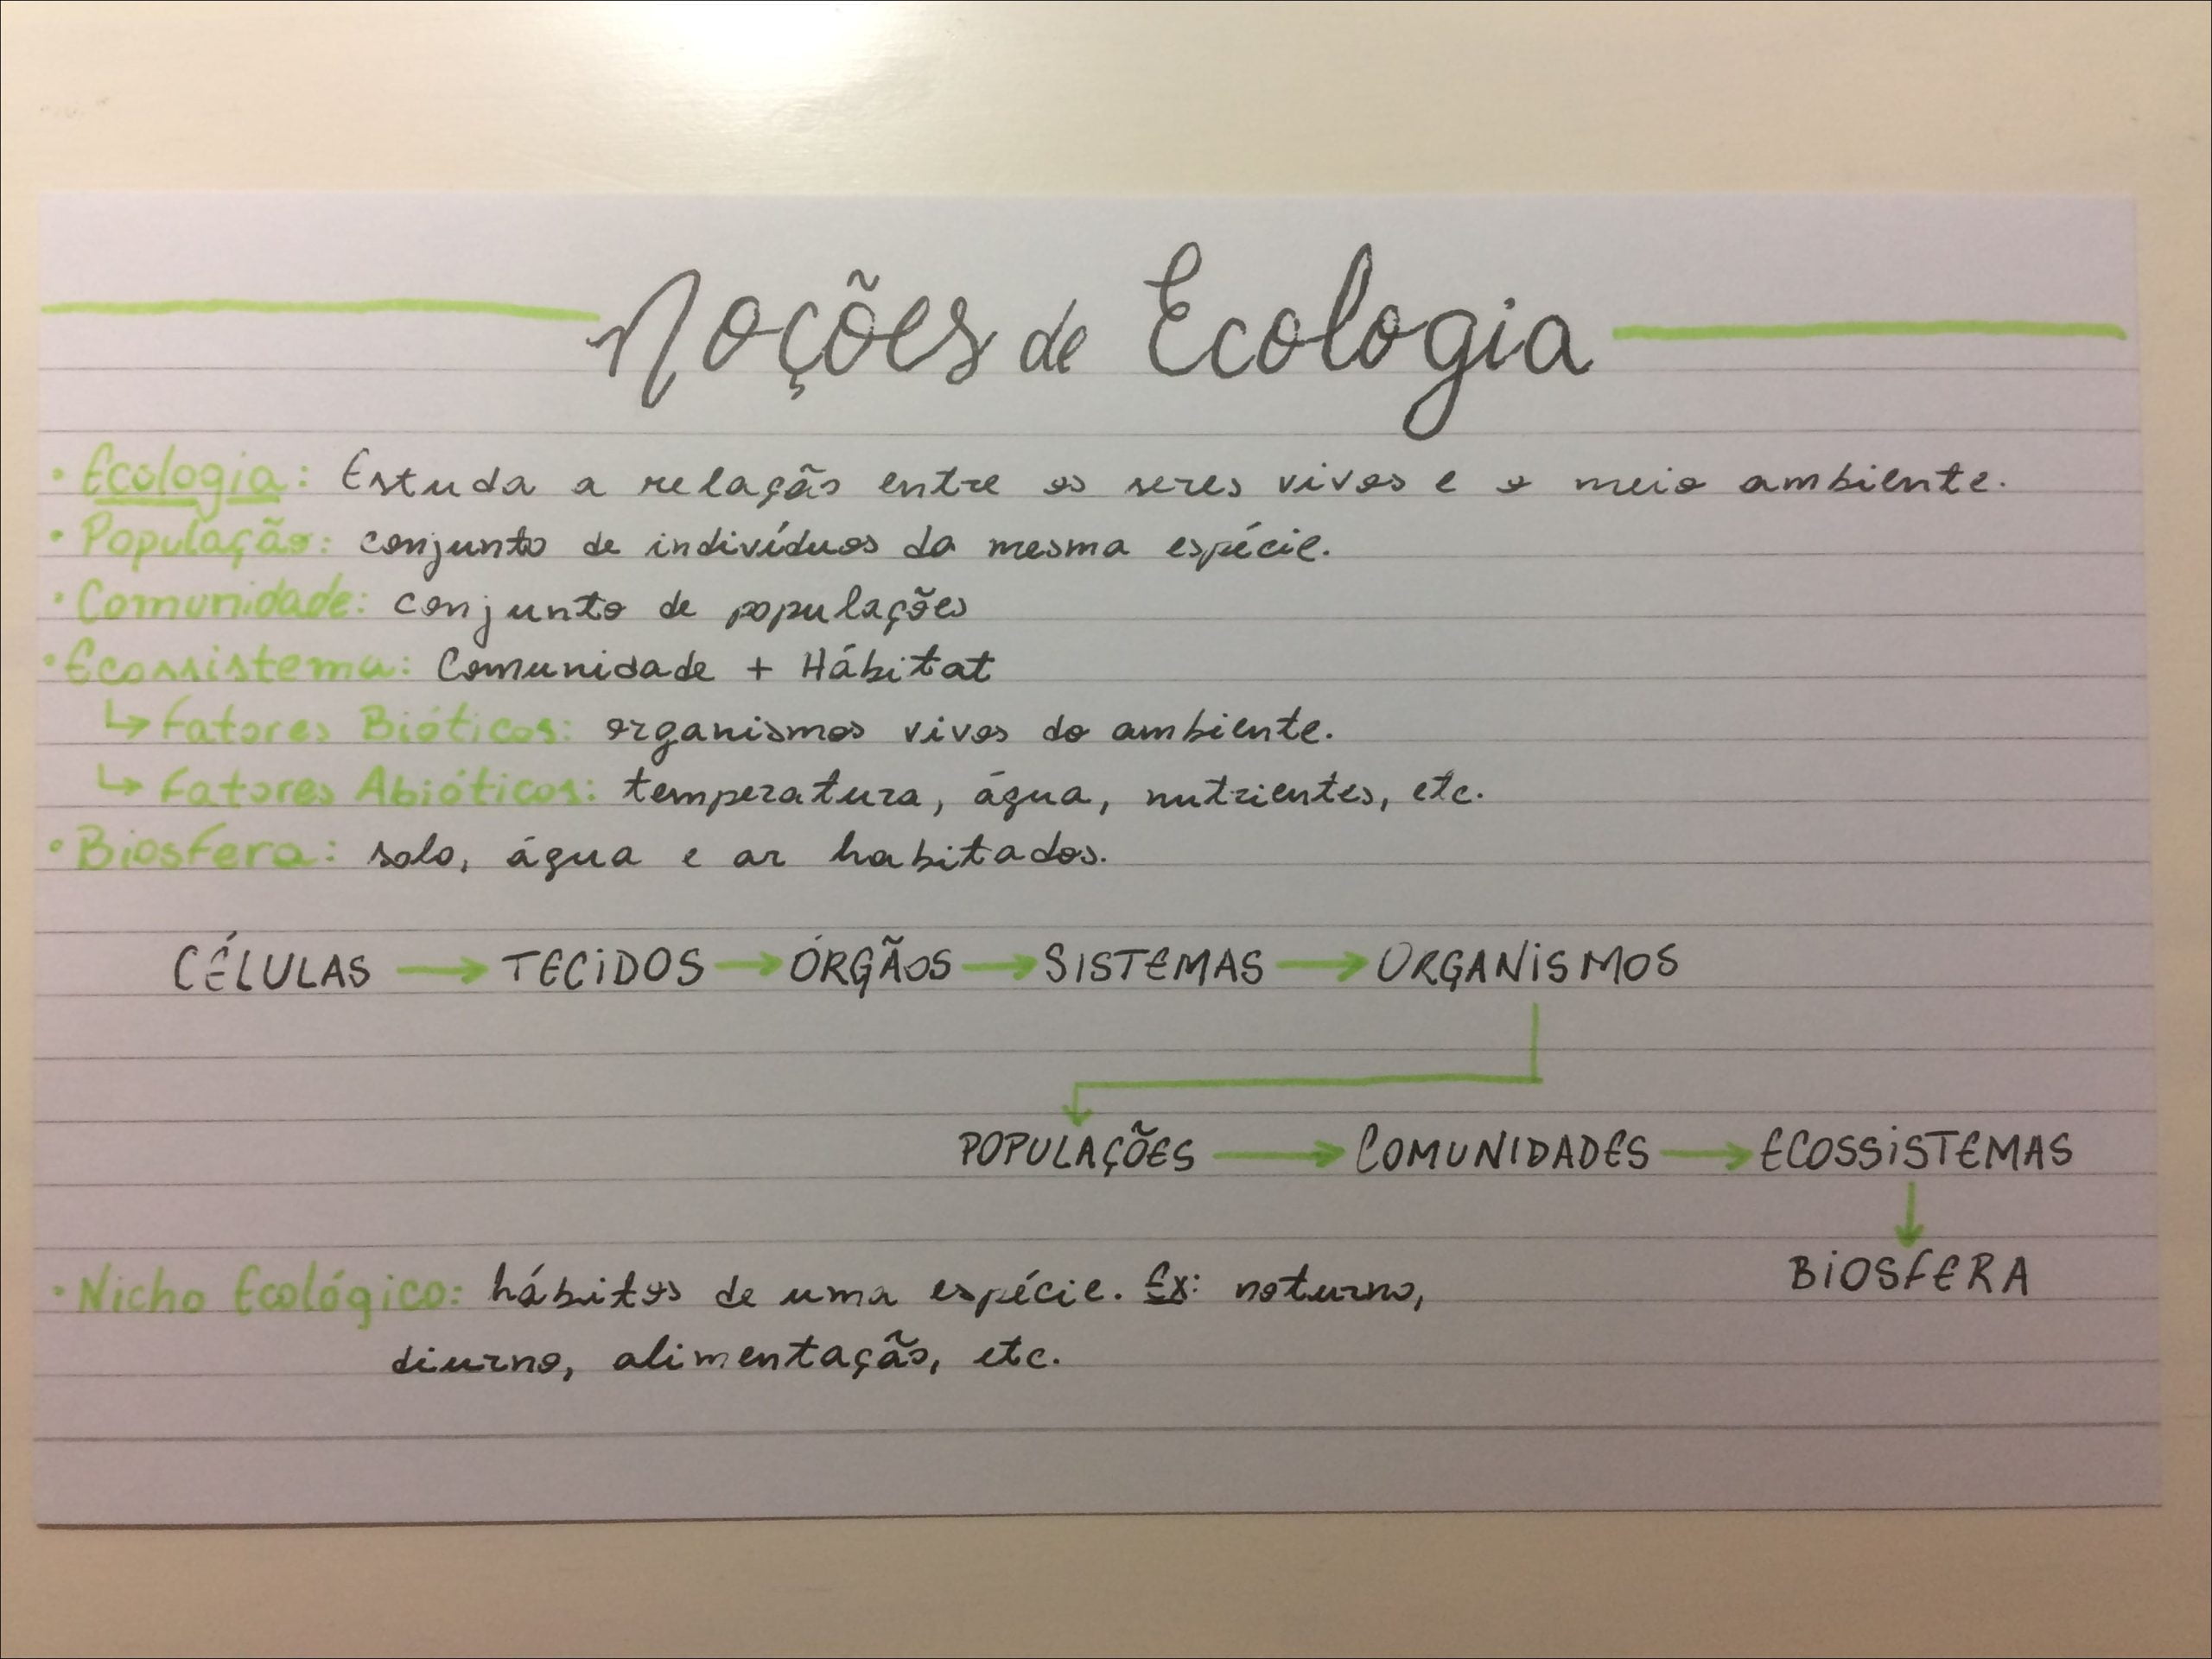 Noções de Ecologia
• Ecologia: Estuda a relação entre os seres vivos e o meio ambiente.
• População: conjunto de indivíduos da mesma espécie.
• Comunidade: conjunto de populações
• Ecossistema: Comunidade + Hábitat
↳ Fatores Bióticos: organismos vivos do ambiente.
↳ Fatores Abióticos: temperatura, água, nutrientes, etc.
• Biosfera: solo, água e ar habitados.
CÉLULAS → TECIDOS → ÓRGÃOS → SISTEMAS → ORGANISMOS
POPULAÇÕES → COMUNIDADES → ECOSSISTEMAS
BIOSFERA
• Nicho Ecológico: hábitos de uma espécie. Ex: noturno,
diurno, alimentação, etc.